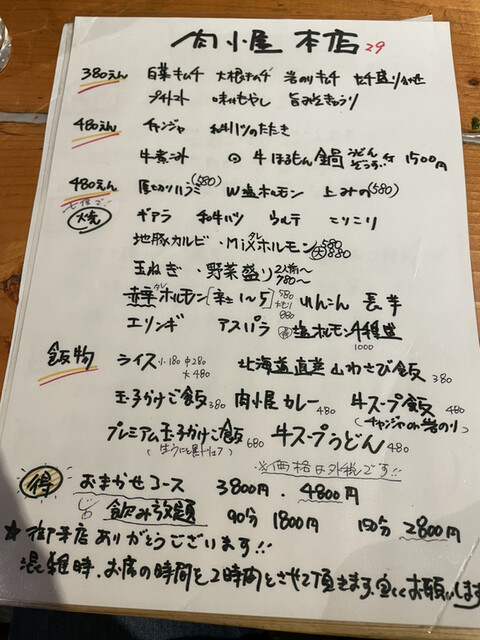 肉小屋 本店 29
380えん 白菜キムチ 大根キムチ 岩のりキムチ キムチ盛り合せ
プチトマト 味付もやし 旨みそきゅうり
480えん チャンジャ 和牛ハツのたたき
牛煮こみ 牛ほるもん鍋 うどん ぞうすい 付 1500円
480えん 厚切りハラミ(580) W塩ホルモン 上みの(580)
焼 ギアラ 和牛ハツ ウルテ コリコリ
地豚カルビ・Mixホルモン タレ 580 大880
玉ねぎ・野菜盛り 2人前〜 780〜
赤辛ホルモン タレ [辛さ1〜5] 580 大モリ 880 れんこん 長芋
エリンギ アスパラ 塩ホルモン4種盛 1000
飯物 ライス 小180 中280 大480 北海道直送 山わさび飯 380
玉子かけご飯 380 肉小屋カレー 480 牛スープ飯 480
(チャンジャ or 岩のり)
プレミアム玉子かけご飯 680 牛スープうどん 480
※価格は外税です!!
得 おまかせコース 3800円・4800円
飲み放題 90分 1800円 150分 2800円
★御来店ありがとうございます!!
混雑時、お席の時間を2時間とさせて頂きます、宜しくお願いします